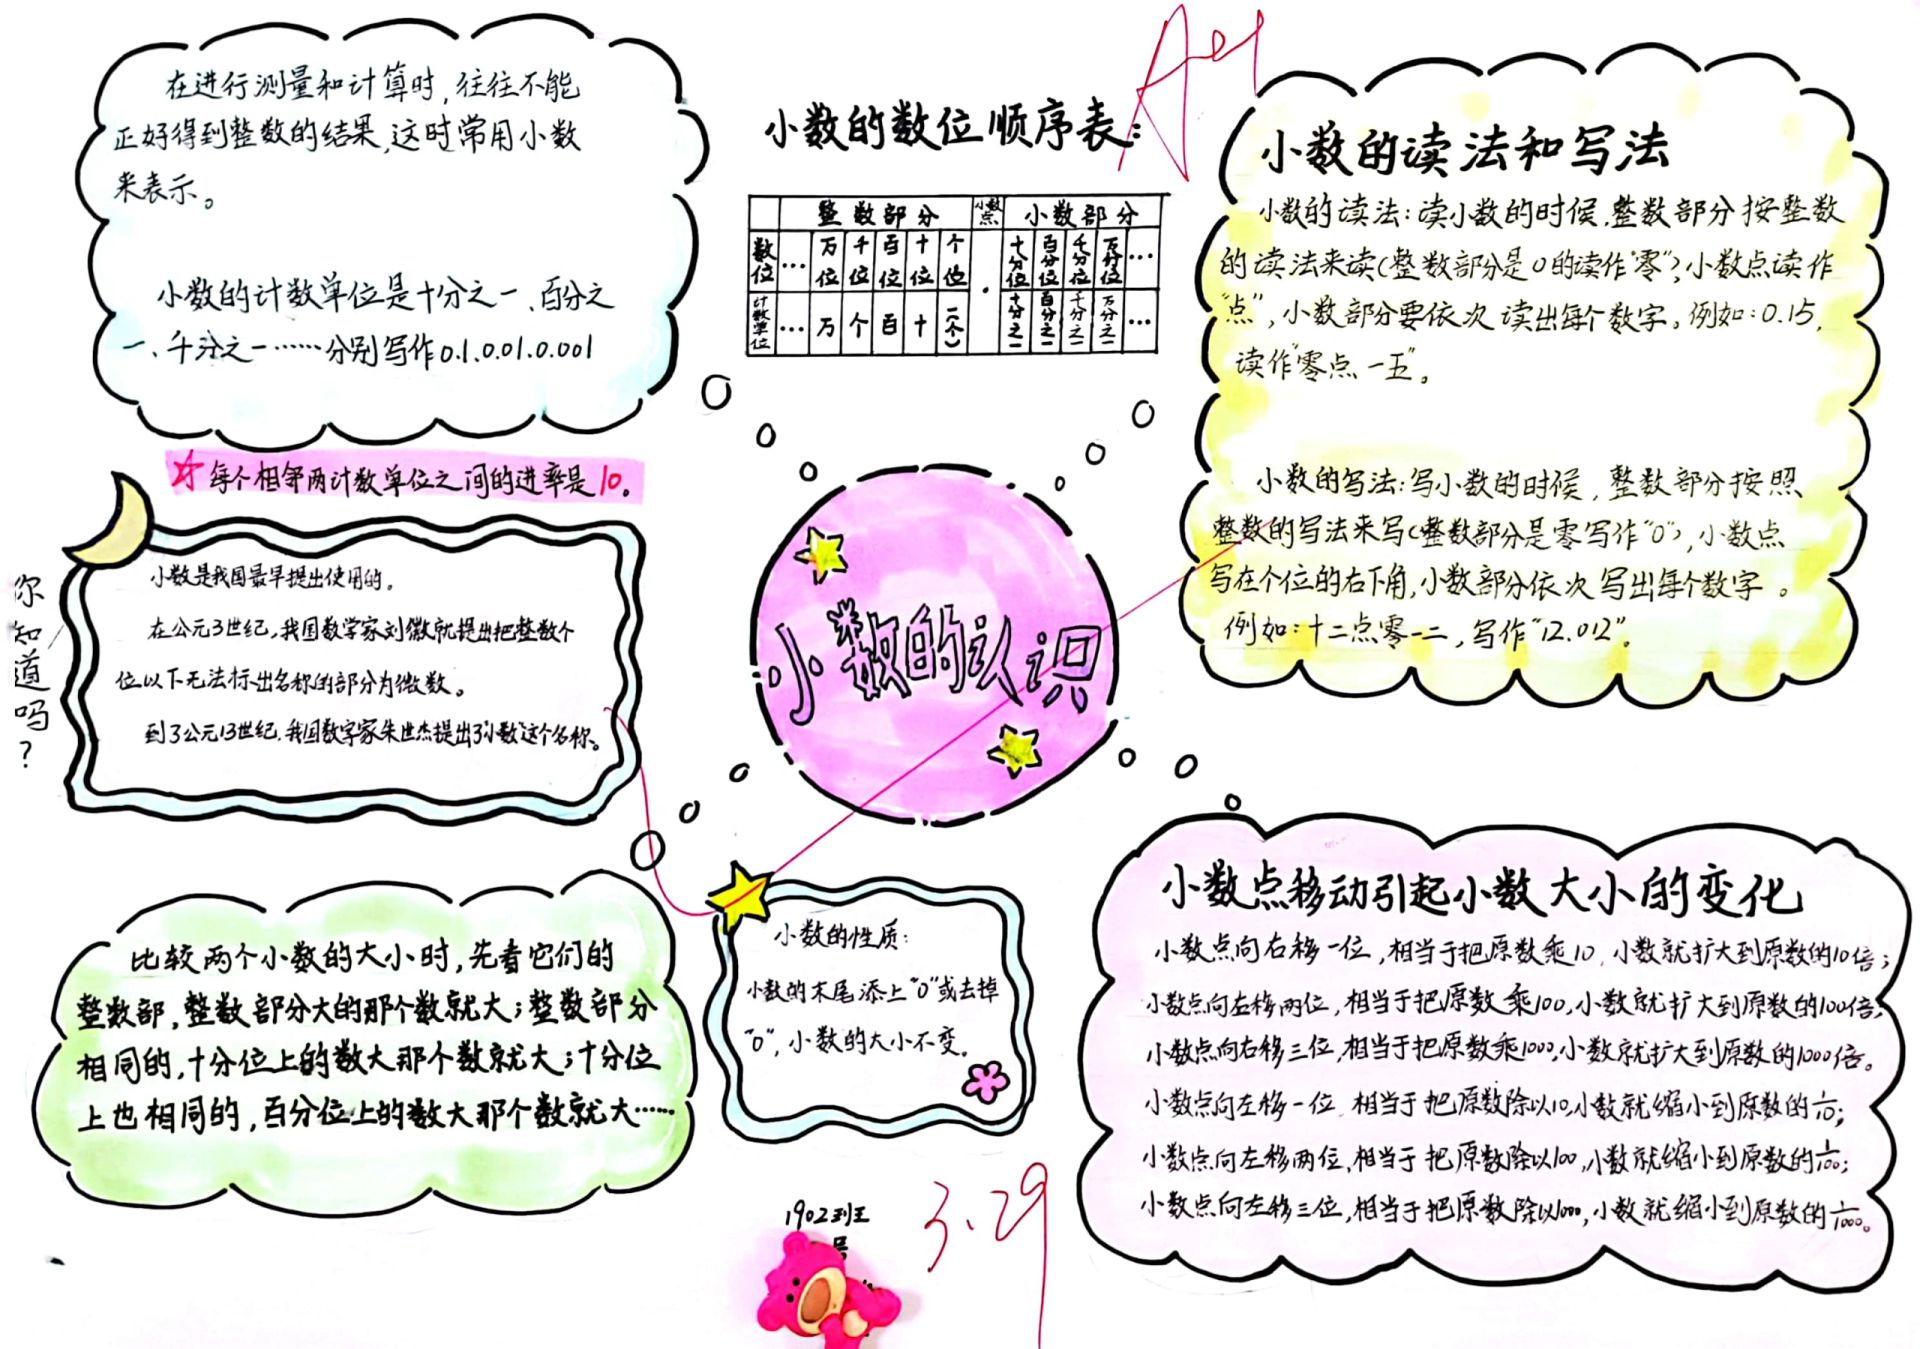 在进行测量和计算时,往往不能
正好得到整数的结果,这时常用小数
来表示。
小数的计数单位是十分之一、百分之
一、千分之一……分别写作0.1、0.01、0.001
☆每个相邻两计数单位之间的进率是10。
小数的数位顺序表:
整数部分 小数点 小数部分
数位 … 万位 千位 百位 十位 个位 · 十分位 百分位 千分位 万分位 …
计数单位 … 万 个 百 十 一(个) 十分之一 百分之一 千分之一 万分之一 …
小数的读法和写法
小数的读法:读小数的时候,整数部分按整数
的读法来读(整数部分是0的读作"零"),小数点读作
"点",小数部分要依次读出每个数字。例如:0.15,
读作"零点一五"。
小数的写法:写小数的时候,整数部分按照
整数的写法来写(整数部分是零写作"0"),小数点
写在个位的右下角,小数部分依次写出每个数字。
例如:十二点零一二,写作"12.012"。
你知道吗?
小数是我国最早提出使用的。
在公元3世纪,我国数学家刘徽就提出把整数个
位以下无法标出名称的部分为微数。
到了公元13世纪,我国数字家朱世杰提出了"小数"这个名称。
小数的认识
比较两个小数的大小时,先看它们的
整数部,整数部分大的那个数就大;整数部分
相同的,十分位上的数大那个数就大;十分位
上也相同的,百分位上的数大那个数就大……
小数的性质:
小数的末尾添上"0"或去掉
"0",小数的大小不变。
小数点移动引起小数大小的变化
小数点向右移一位,相当于把原数乘10,小数就扩大到原数的10倍;
小数点向左移两位,相当于把原数乘100,小数就扩大到原数的100倍;
小数点向右移三位,相当于把原数乘1000,小数就扩大到原数的1000倍。
小数点向左移一位,相当于把原数除以10,小数就缩小到原数的1/10;
小数点向左移两位,相当于把原数除以100,小数就缩小到原数的1/100;
小数点向左移三位,相当于把原数除以1000,小数就缩小到原数的1/1000。
1902班
号
3.29